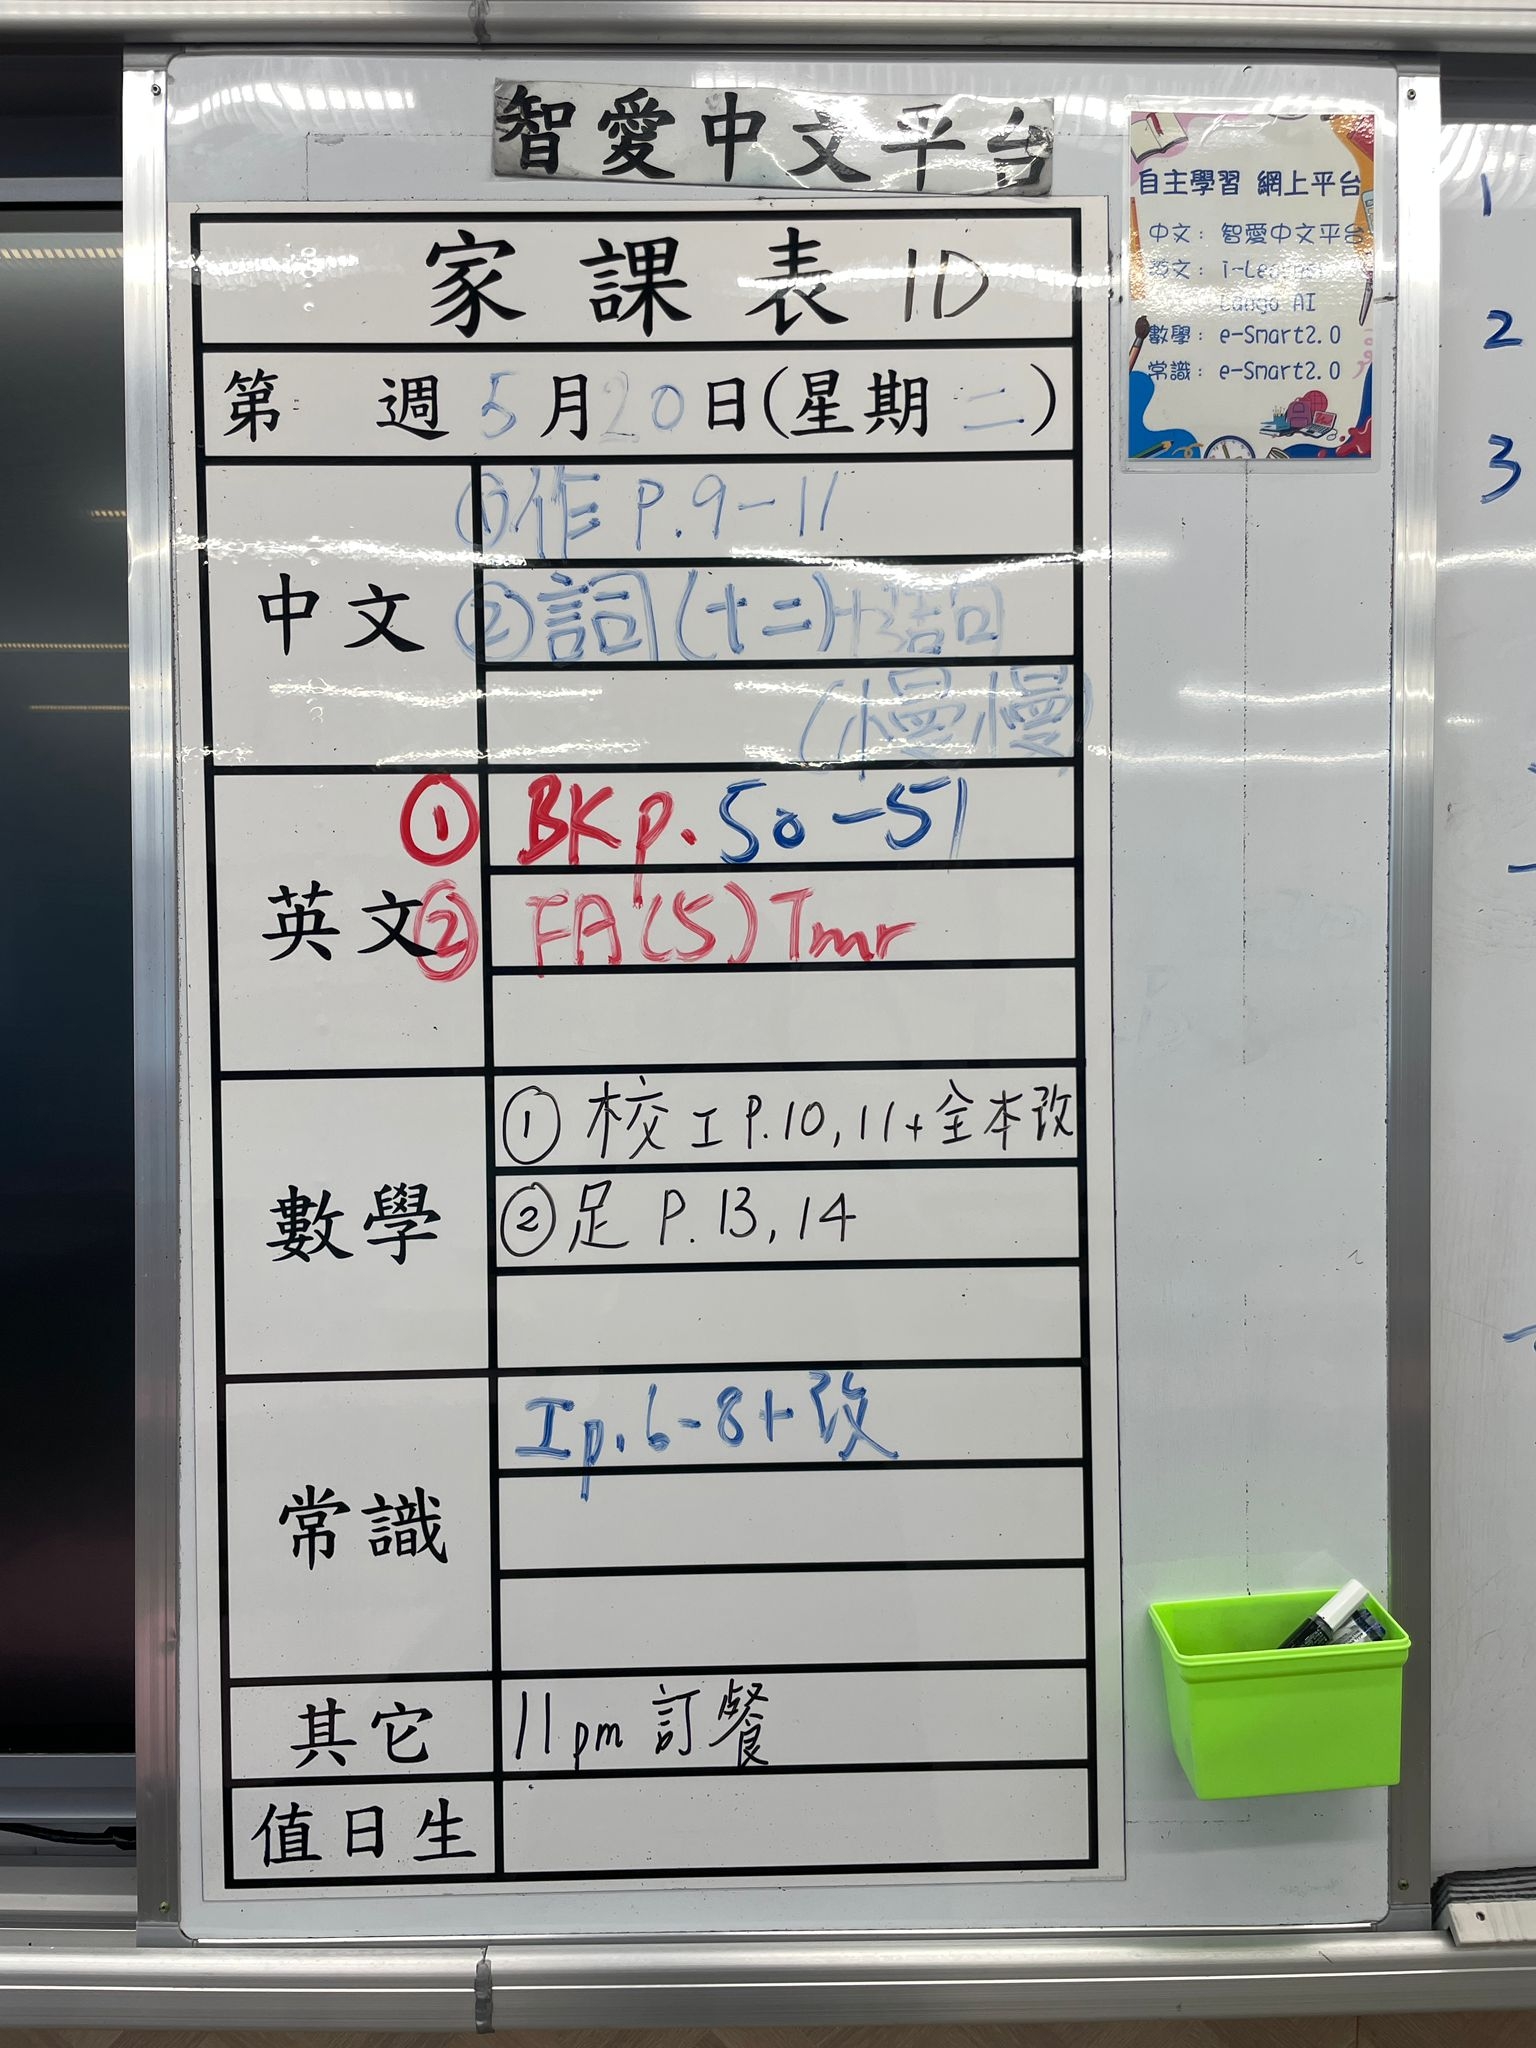 智愛中文平台
自主學習 網上平台
中文：智愛中文平台
英文：i-Learner
Lango AI
數學：e-Smart2.0
常識：e-Smart2.0
家課表 1D
第 週 5月20日(星期二)
中文
①作 P.9-11
②詞(十二)+3詞
(慢慢)
英文
① BK p. 50-51
② FA(5) Tmr
數學
① 校工 P.10, 11+全本改
② 足 P.13, 14
常識
工p.6-8+改
其它
11pm 訂餐
值日生
1
2
3